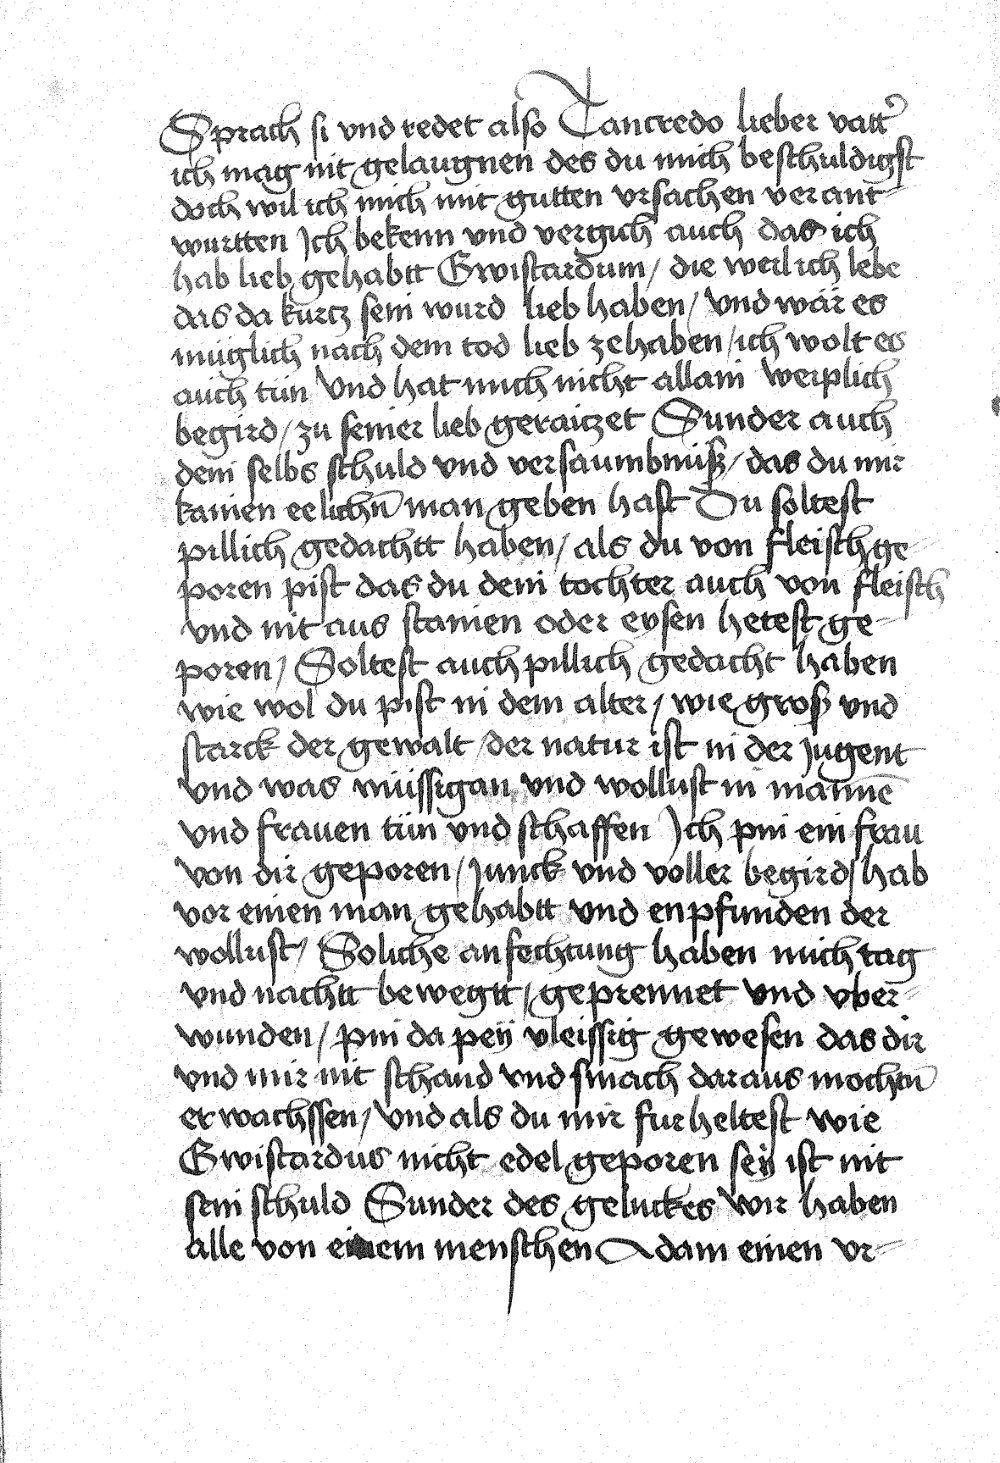 Sprach si vnd redet also Tancredo lieber vatt᷑
ich mag nit gelaugnen des du mich beschuldigst
doch wil ich mich mit gutten vrsachen verant-
wurtten Ich bekenn vnd vergich auch das ich
hab lieb gehabtt Gwistardum / die weil ich lebe
das da kurcz sein wurd lieb haben / Vnd wär es
müglich nach dem tod lieb zehaben / ich wolt es
auch tün Vnd hat mich nicht allain weiplich
begird / zu seiner lieb geraiczet Sunder auch
dein selbs schuld vnd versaumbnüß / das du mir
kainen eelichn̄ man geben hast Du soltest
pillich gedachtt haben / als du von fleisch ge-
poren pist das du dein tochter auch von fleisch
vnd nit aus stainen oder eysen hetest ge-
poren / Soltest auch pillich gedacht haben
wie wol du pist in dem alter / wie groß vnd
starck der gewalt / der natur ist in der Jugent
vnd was müssigan vnd wollust in mānnē
vnd frauen tün vnd schaffen Ich pin ein frau
von dir geporen / Junck vnd voller begird / hab
vor einen man gehabtt vnd enpfunden der
wollust / Soliche anfechtung haben mich tag
vnd nachtt bewegtt / geprennet vnd vber-
wunden / pin da peÿ vleissig gewesen das dir
vnd mir nit schand vnd smach daraus mochtn̄
erwachssen / Vnd als du mir furheltest wie
Gwistardus nicht edel geporen seÿ ist nit
sein schuld Sunder des geluckes Wir haben
alle von einem menschen Adam einen vr-